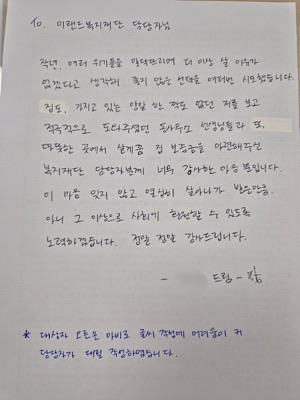 To. 이랜드복지재단 담당자님
작년, 여러 위기들을 맞닥뜨리며 더 이상 살 이유가
없겠다고 생각해 좋지 않은 선택을 여러번 시도했습니다.
집도, 가지고 있는 양말 한 짝도 없던 저를 보고
적극적으로 도와주셨던 동사무소 선생님들과 또,
따뜻한 곳에서 살게끔 집 보증금을 마련해주신
복지재단 담당자분께 너무 감사한 마음 뿐입니다.
이 마음 잊지 않고 열심히 살아나가 받은만큼,
아니 그 이상으로 사회에 환원할 수 있도록
노력하겠습니다. 정말 정말 감사드립니다.
- 드림 -
* 대상자 오른손 마비로 글씨 작성에 어려움이 커
담당자가 대필 작성하였습니다.